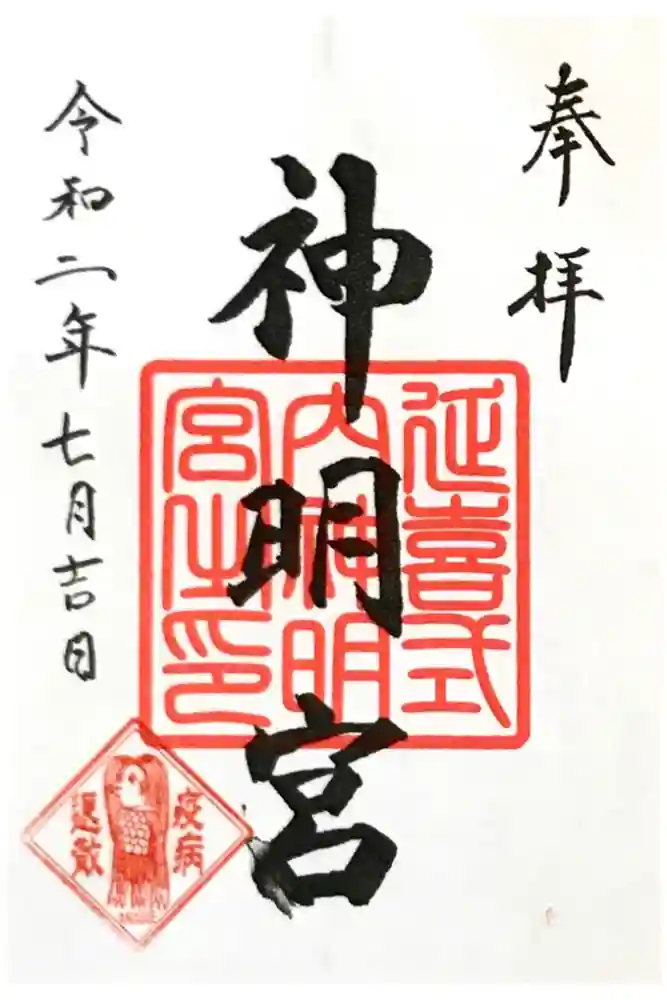 奉拝
神明宮
延喜式
内神明
宮之印
令和二年七月吉日
疫病
退散